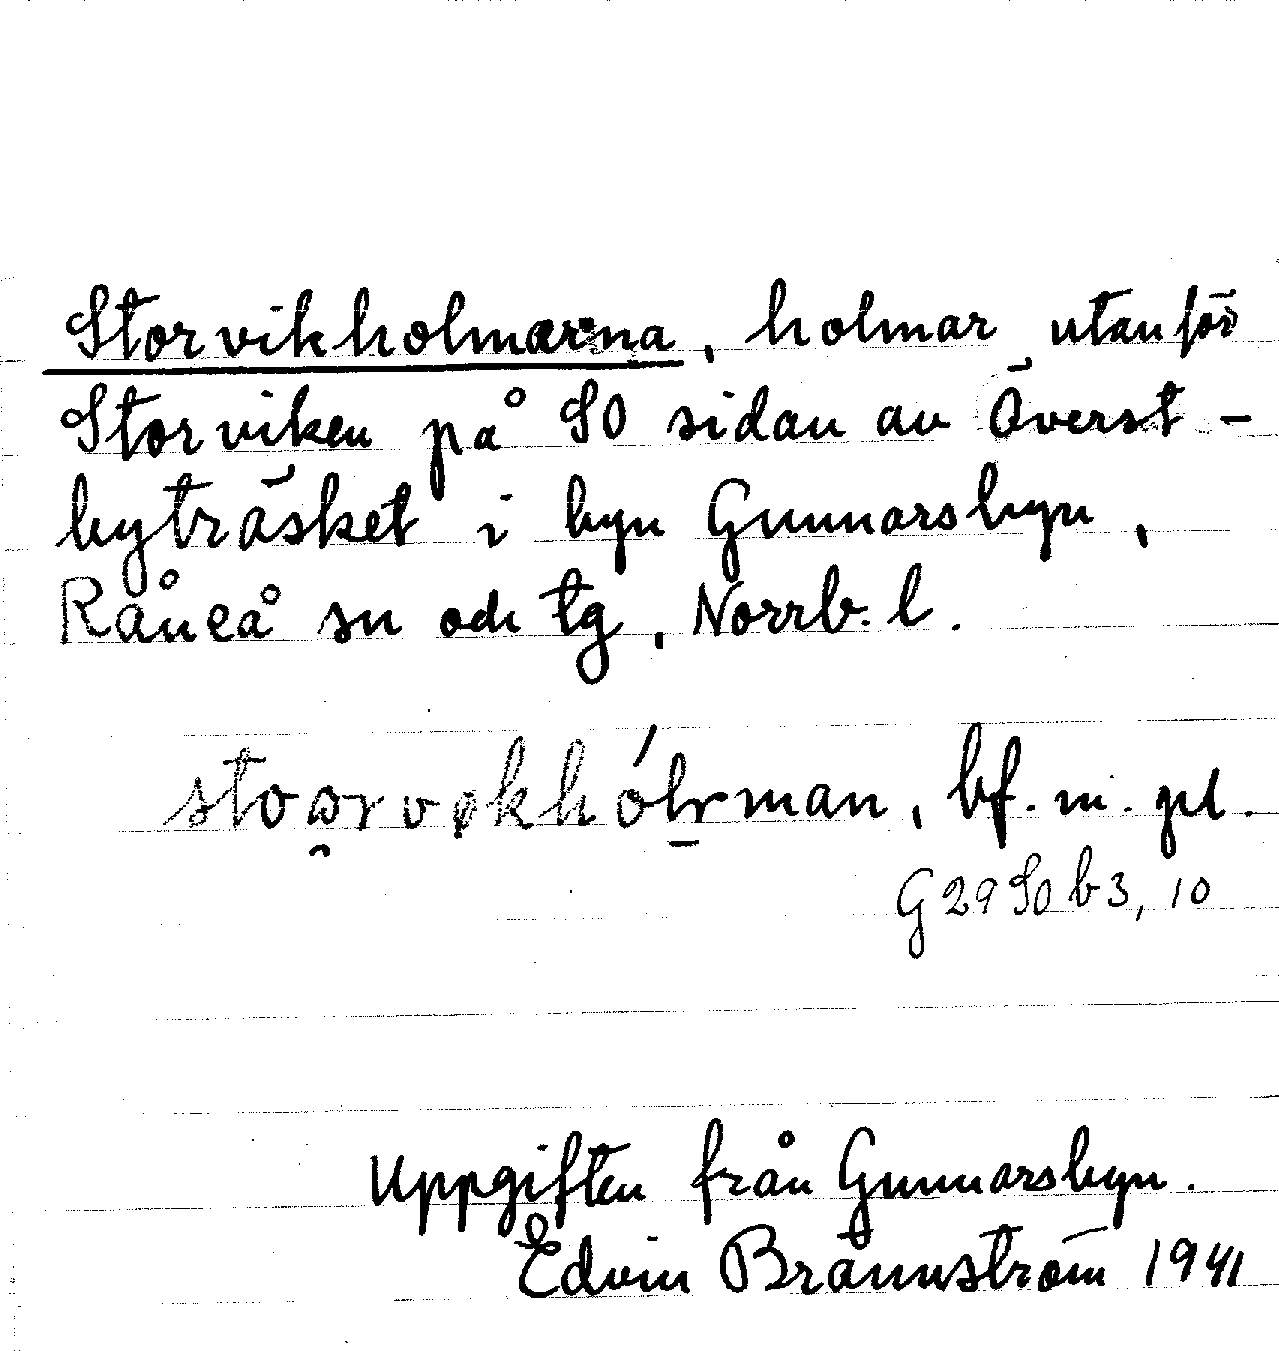 Storvikholmarna, holmar utanför
Storviken på SO sidan av Överst-
byträsket i byn Gunnarsbyn,
Råneå sn och tg, Norrb. l.
bf. m. pl.
G 29 SO b 3, 10
Uppgiften från Gunnarsbyn.
Edvin Brännström 1941